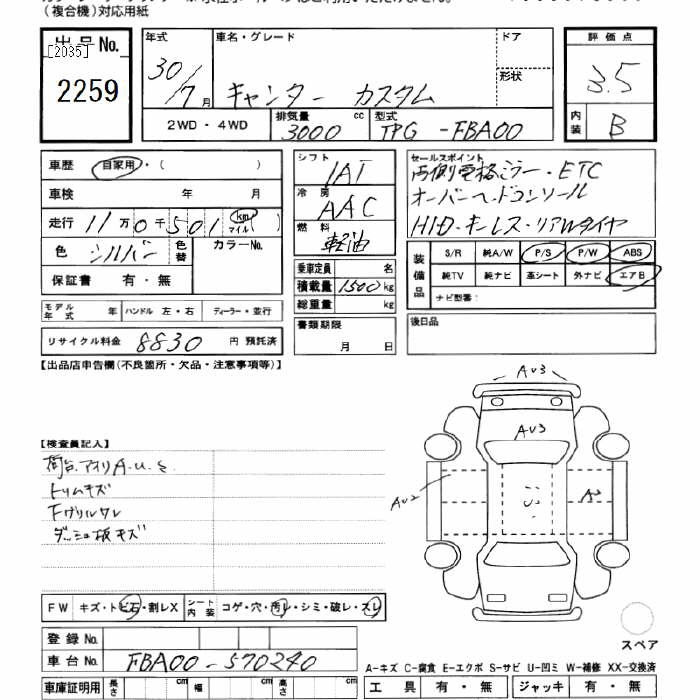 (複合機)対応用紙
出品No.
[2035]
2259
年式 30/7月
車名・グレード キャンター カスタム
ドア
形状
2WD・4WD
排気量 3000 cc
型式 TPG-FBA00
評価点 3.5
内装 B
車歴 自家用・( )
車検 年 月
走行 11万0千501 (km マイル)
色 シルバー 色替 カラーNo.
保証書 有・無
モデル年式 年 ハンドル 左・右 ディーラー・並行
リサイクル料金 8830 円 預託済
シフト IAT
冷房 AAC
燃料 軽油
乗車定員 名
積載量 1500 kg
総重量 kg
書類期限
月 日
セールスポイント
両側電格ミラー・ETC
オーバーヘッドコンソール
HID・キーレス・リアWタイヤ
装備品
S/R 純A/W P/S P/W ABS
純TV 純ナビ 革シート 外ナビ エアB
ナビ型番:
後日品
【出品店申告欄(不良箇所・欠品・注意事項等)】
【検査員記入】
荷台.アオリA.U.S
トリムキズ
Fグリルワレ
ダッシュ板キズ
AU3
AU3
AU2
A2
FW キズ・トビ石・割レX
シート内装 コゲ・穴・汚レ・シミ・破レ・スレ
登録No.
車台No. FBA00-570240
車庫証明用 長さ cm 幅 cm 高さ cm
スペア
A-キズ C-腐食 E-エクボ S-サビ U-凹ミ W-補修 XX-交換済
工具 有・無 ジャッキ 有・無